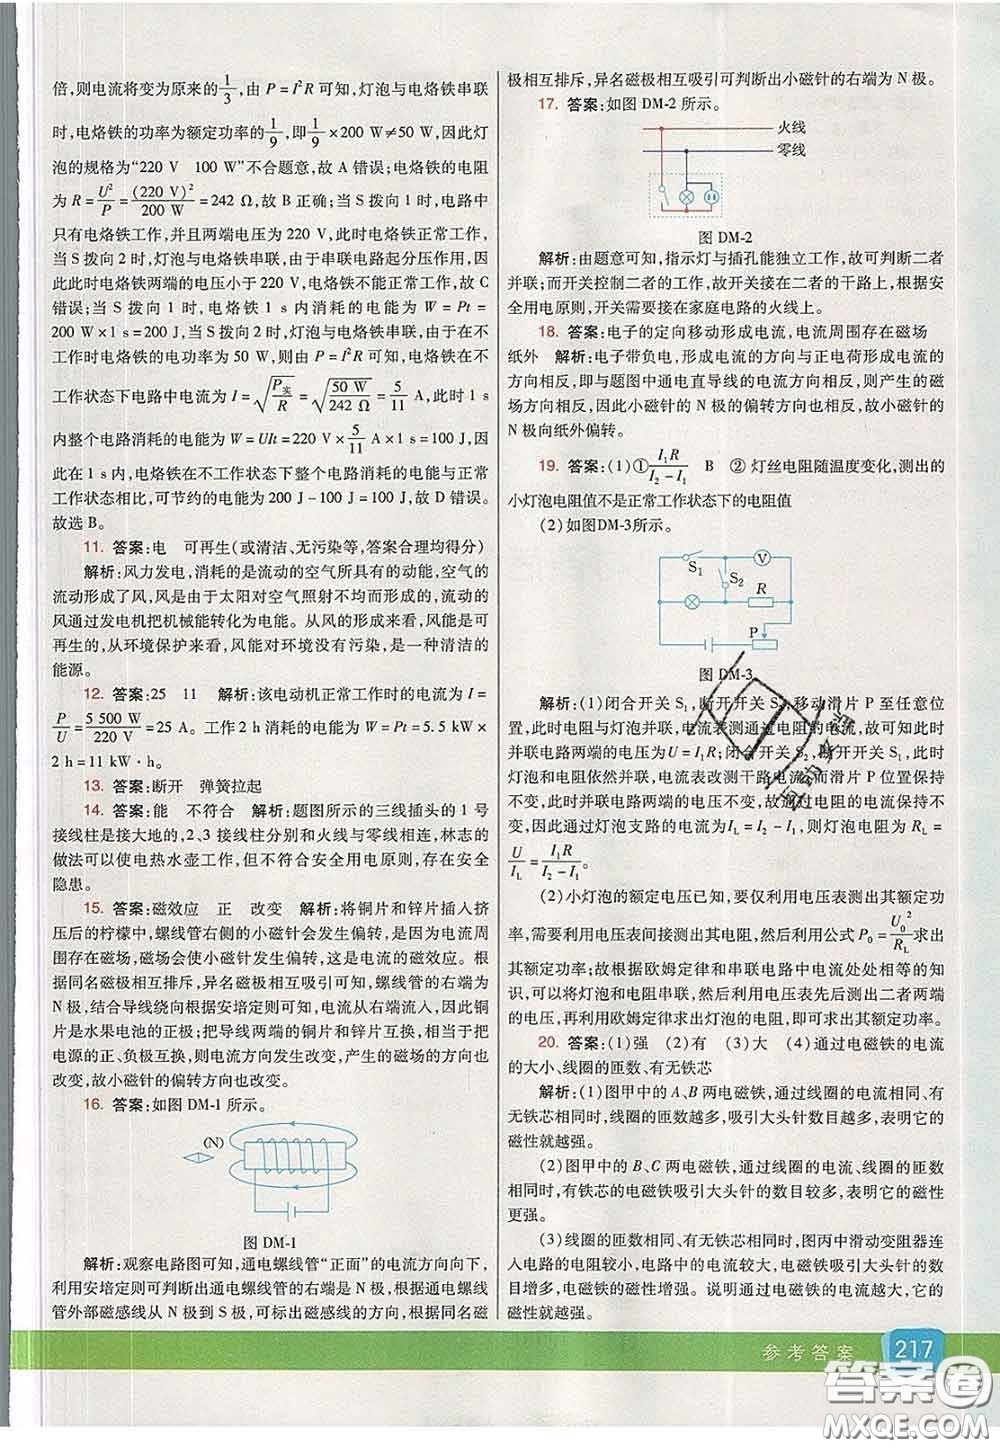 倍,则电流将变为原来的1/3,由 P=I²R 可知,灯泡与电烙铁串联
时,电烙铁的功率为额定功率的1/9,即1/9×200 W≠50 W,因此灯
泡的规格为“220 V　100 W”不合题意,故 A 错误;电烙铁的电阻
为 R=U²/P=(220 V)²/200 W=242 Ω,故 B 正确;当 S 拨向 1 时,电路中
只有电烙铁工作,并且两端电压为 220 V,此时电烙铁正常工作,
当 S 拨向 2 时,灯泡与电烙铁串联,由于串联电路起分压作用,因
此此时电烙铁两端的电压小于 220 V,电烙铁不能正常工作,故 C
错误;当 S 拨向 1 时,电烙铁 1 s 内消耗的电能为 W=Pt=
200 W×1 s=200 J,当 S 拨向 2 时,灯泡与电烙铁串联,由于在不
工作时电烙铁的电功率为 50 W,则由 P=I²R 可知,电烙铁在不
工作状态下电路中电流为 I=√(P实/R)=√(50 W/242 Ω)=5/11 A,此时 1 s
内整个电路消耗的电能为 W=UIt=200 V×5/11 A×1 s=100 J,因
此在 1 s 内,电烙铁在不工作状态下整个电路消耗的电能与正常
工作状态相比,可节约的电能为 200 J-100 J=100 J,故 D 错误。
故选 B。
11. 答案:电　可再生(或清洁、无污染等,答案合理均得分)
解析:风力发电,消耗的是流动的空气所具有的动能,空气的
流动形成了风,风是由于太阳对空气照射不均而形成的,流动的
风通过发电机把机械能转化为电能。从风的形成来看,风能是可
再生的,从环境保护来看,风能对环境没有污染,是一种清洁的
能源。
12. 答案:25　11　解析:该电动机正常工作时的电流为 I=
P/U=5 500 W/220 V=25 A。工作 2 h 消耗的电能为 W=Pt=5.5 kW×
2 h=11 kW·h。
13. 答案:断开　弹簧拉起
14. 答案:能　不符合　解析:题图所示的三线插头的 1 号
接线柱是接大地的,2、3 接线柱分别和火线与零线相连,林志的
做法可以使电热水壶工作,但不符合安全用电原则,存在安全
隐患。
15. 答案:磁效应　正　改变　解析:将铜片和锌片插入挤
压后的柠檬中,螺线管右侧的小磁针会发生偏转,是因为电流周
围存在磁场,磁场会使小磁针发生偏转,这是电流的磁效应。根
据同名磁极相互排斥,异名磁极相互吸引可知,螺线管的右端为
N 极,结合导线绕向根据安培定则可知,电流从右端流入,因此铜
片是水果电池的正极;把导线两端的铜片和锌片互换,相当于把
电源的正、负极互换,则电流方向发生改变,产生的磁场方向也
改变,故小磁针的偏转方向也改变。
16. 答案:如图 DM-1 所示。
(N)
图 DM-1
解析:观察电路图可知,通电螺线管“正面”的电流方向向下,
利用安培定则可判断出通电螺线管的右端是 N 极,根据通电螺线
管外部磁感线从 N 极到 S 极,可标出磁感线的方向,根据同名磁
极相互排斥,异名磁极相互吸引可判断出小磁针的右端为 N 极。
17. 答案:如图 DM-2 所示。
火线
零线
图 DM-2
解析:由题意可知,指示灯与插孔能独立工作,故可判断二者
并联;而开关控制二者的工作,故开关接在二者的干路上,根据安
全用电原则,开关需要接在家庭电路的火线上。
18. 答案:电子的定向移动形成电流,电流周围存在磁场
纸外　解析:电子带负电,形成电流的方向与正电荷形成电流的
方向相反,即与题图中通电直导线的电流方向相反,则产生的磁
场方向相反,因此小磁针的 N 极的偏转方向也相反,故小磁针的
N 极向纸外偏转。
19. 答案:(1)①I₁R/(I₂-I₁)　B　②灯丝电阻随温度变化,测出的
小灯泡电阻值不是正常工作状态下的电阻值
(2)如图DM-3所示。
S₁ V
S₂ R
P
图 DM-3
解析:(1)闭合开关 S₁,断开开关 S₂,移动滑片 P 至任意位
置,此时电阻与灯泡并联,电流表测通过电阻的电流,故可知此时
并联电路两端的电压为 U=I₁R;闭合开关 S₂,断开开关 S₁,此时
电阻和灯泡依然并联,电流表改测干路电流,而滑片 P 位置保持
不变,因此并联电路两端的电压不变,故通过电阻的电流保持不
变,因此通过灯泡支路的电流为 I_L=I₂-I₁,则灯泡电阻为 R_L=
U/I_L=I₁R/(I₂-I₁)。
(2)小灯泡的额定电压已知,要仅利用电压表测出其额定功
率,需要利用电压表间接测出其电阻,然后利用公式 P₀=U₀²/R_L求出
其额定功率;故根据欧姆定律和串联电路中电流处处相等的知
识,可以将灯泡和电阻串联,然后利用电压表先后测出二者两端
的电压,然后利用欧姆定律求出灯泡的电阻,即可求出额定功率。
20. 答案:(1)强　(2)有　(3)大　(4)通过电磁铁的电流
的大小、线圈的匝数、有无铁芯
解析:(1)图甲中的 A、B 两电磁铁,通过线圈的电流相同、有
无铁芯相同时,线圈的匝数越多,吸引大头针数目越多,表明它的
磁性就越强。
(2)图甲中的 B、C 两电磁铁,通过线圈的电流、线圈的匝数
相同时,有铁芯的电磁铁吸引大头针的数目较多,表明它的磁性
更强。
(3)线圈的匝数相同、有无铁芯相同,图丙中滑动变阻器连
入电路的电阻较小,电路中的电流较大,电磁铁吸引大头针的数
目增多,电磁铁的磁性增强。说明通过电磁铁的电流越大,它的
磁性就越强。
参考答案 217
答案圈
MXQE.COM